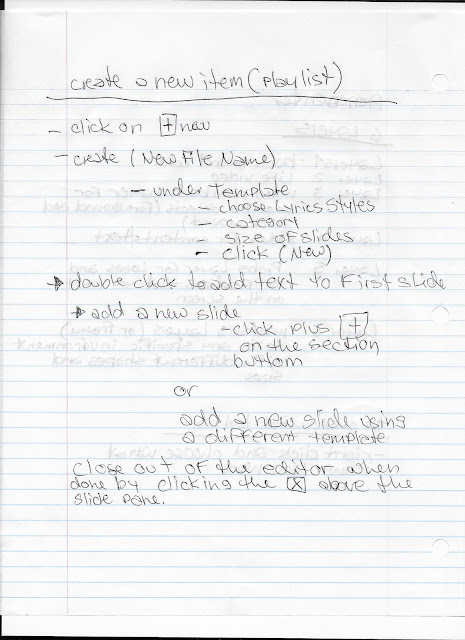 create a new item (playlist)
- click on [+] new
- create (New File Name)
- under Template
- choose Lyrics Styles
- category
- size of slides
- click (New)
→ double click to add text to First slide
→ add a new slide
- click plus [+]
on the section
buttom
or
add a new slide using
a different template
close out of the editor when
done by clicking the [x] above the
slide pane.